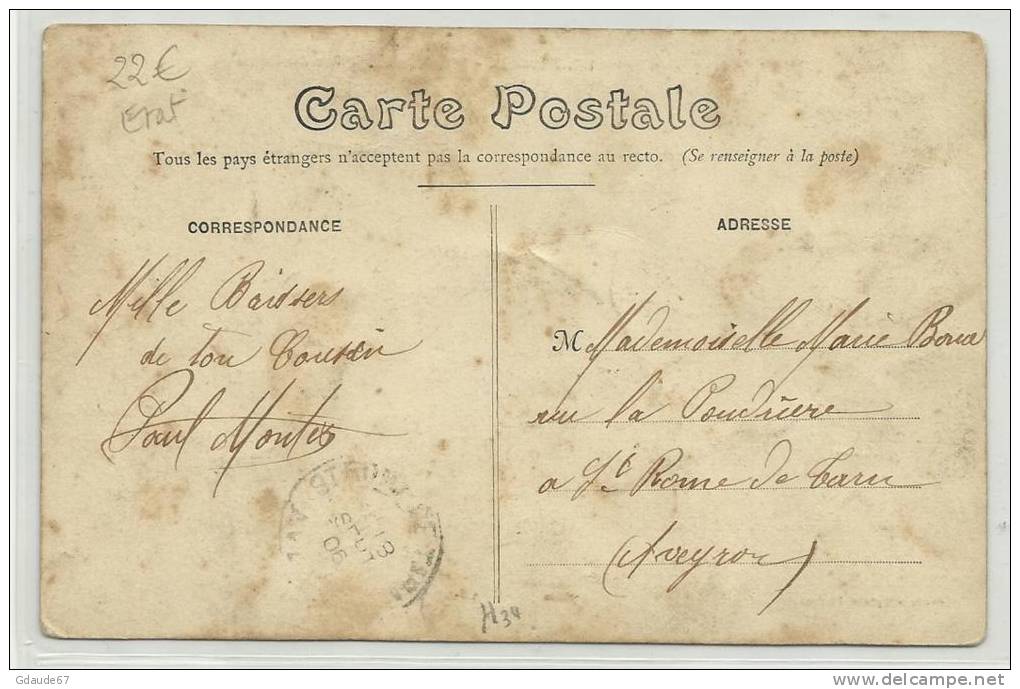 22€
Etat
Carte Postale
Tous les pays étrangers n'acceptent pas la correspondance au recto. (Se renseigner à la poste)
CORRESPONDANCE
ADRESSE
Mille Baisers
de ton Cousin
Paul Montes
M Mademoiselle Marie
rue la Poudrière
a St Rome de Tarn
(Aveyron)
13
SEPT
06
H34
Gdaude67
www.delcampe.net